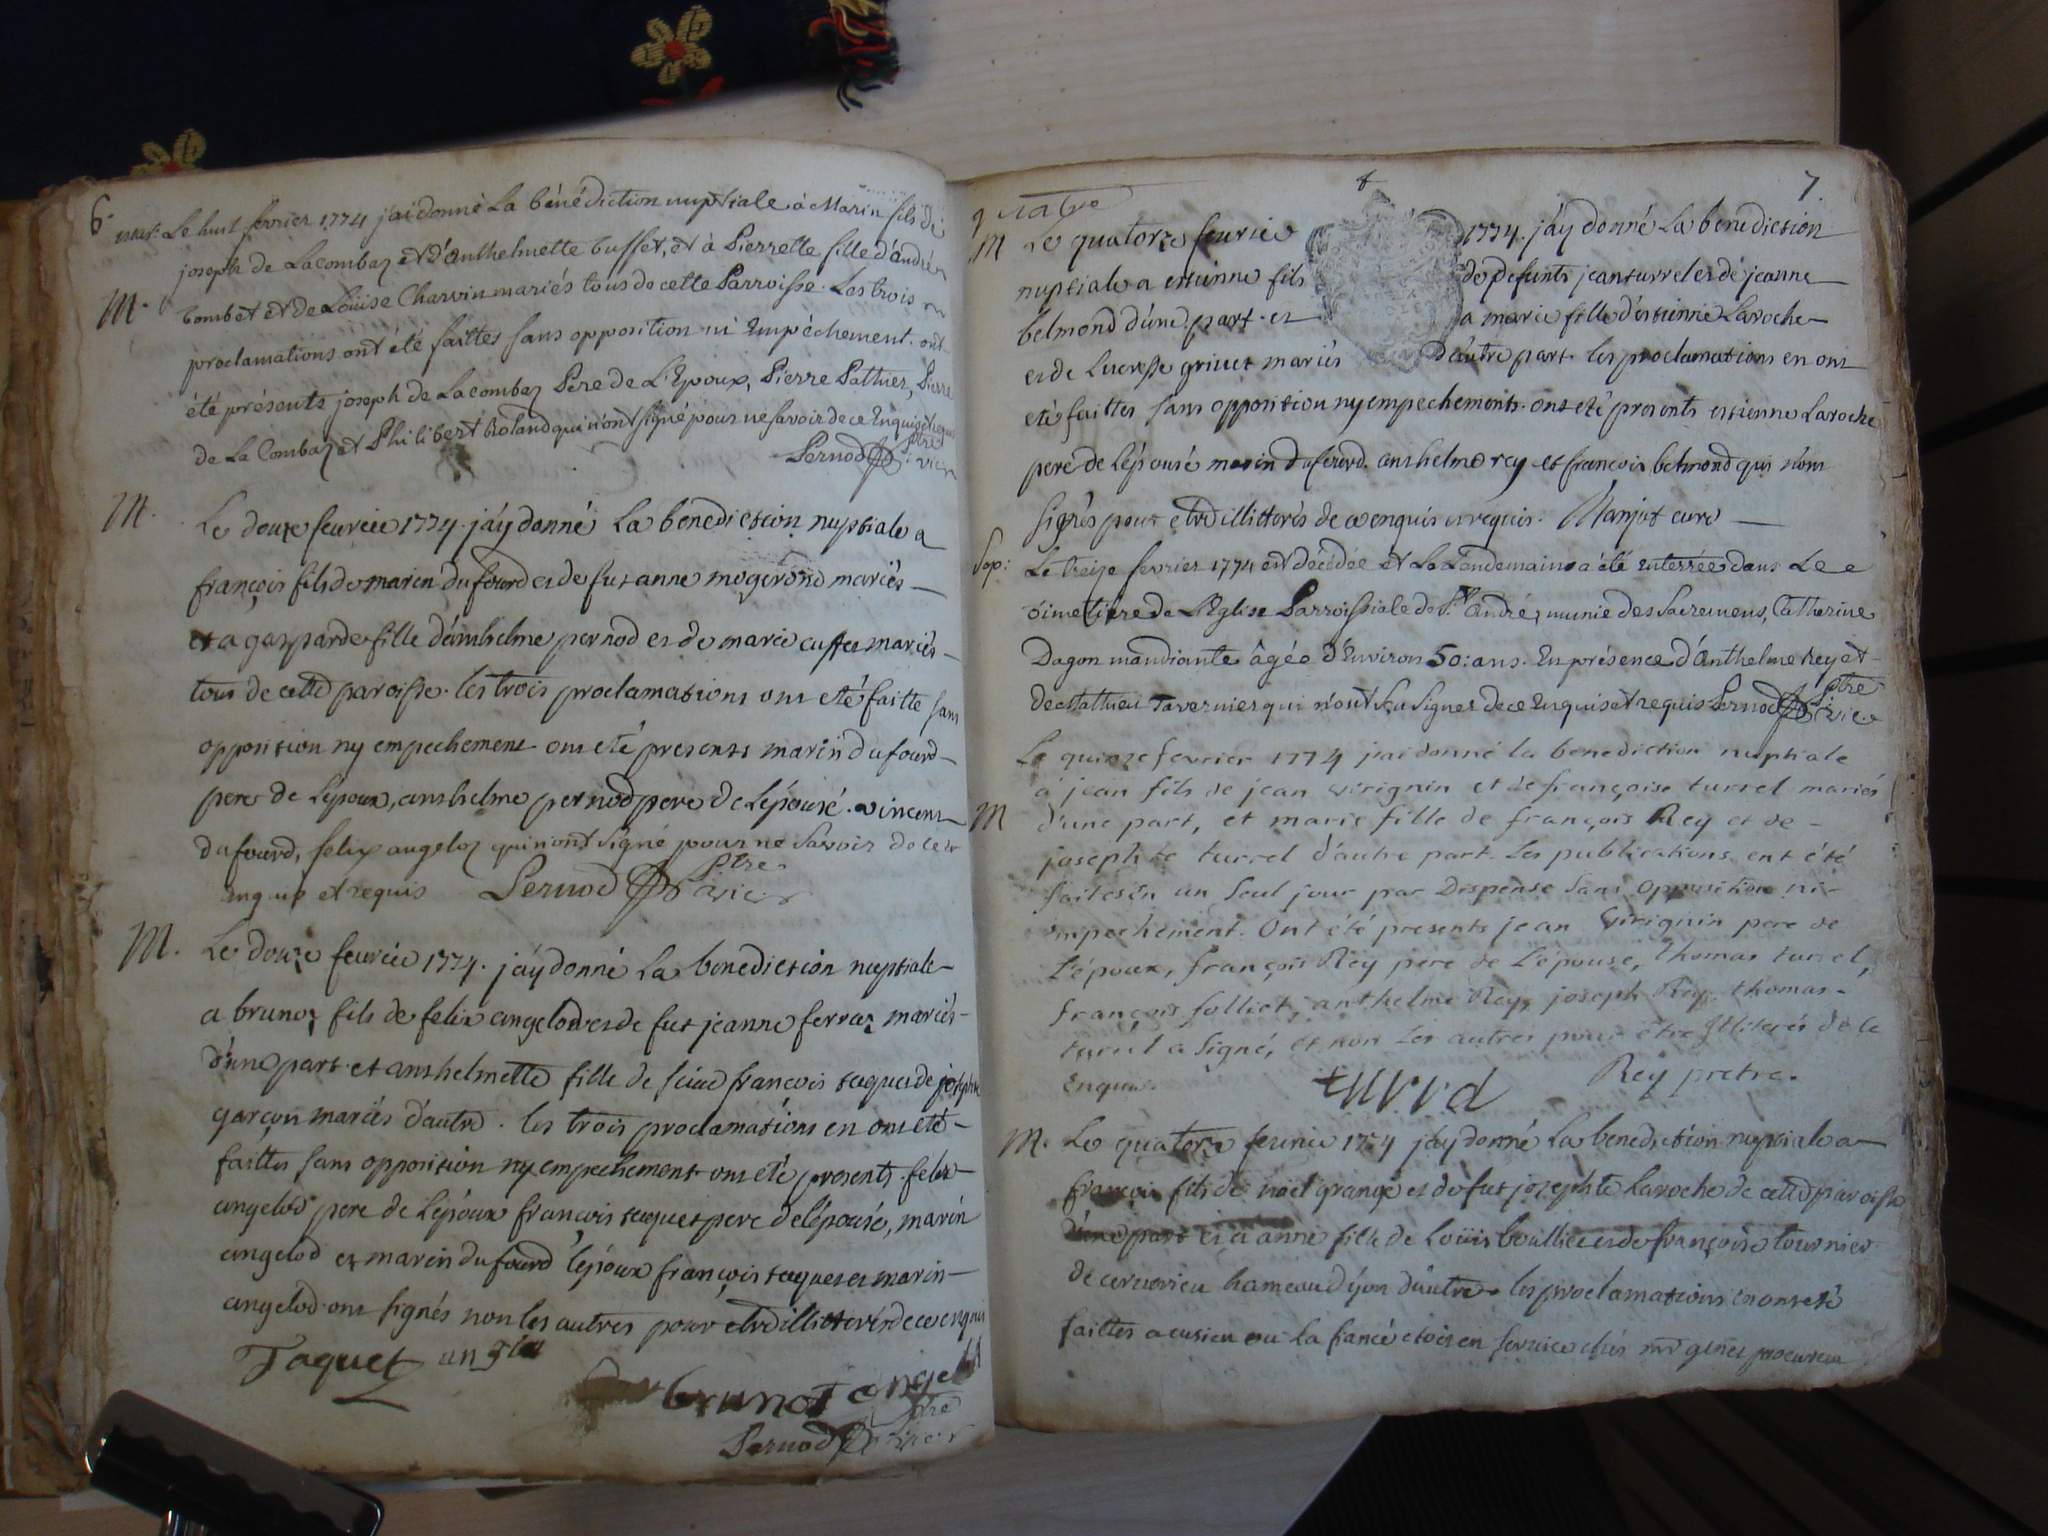 6.
mar: Le huit fevrier 1774 j'ai donné La bénédiction nuptiale à Marin fils de
joseph de Lacombaz et d'anthelmette buffet, et à Pierrette fille d'andré
M. Combet et de Loüise Charvin mariés tous de cette Parroisse. Les trois
proclamations ont été faittes sans opposition ni Empêchement. ont
été présents joseph de Lacombaz Père de L'Epoux, Pierre Pathier, Pierre
de La Combaz et Philibert Roland qui n'ont signé pour ne savoir de ce Enquis et requis
Pernod Ptre vic
M. Le douze feurier 1774. j'ay donné La benediction nuptiale a
françois fils de marin dufourd et de fut anne mogerond mariés
et a gasparde fille d'anthelme pernod et de marie cuffet mariés
tous de cette paroisse. les trois proclamations ont eté faitte sans
opposition ny empechement ont eté presents marin dufourd
pere de L'epoux, anthelme pernod pere de L'epouse. vincent
dufourd, felix angeloz qui n'ont signé pour ne Savoir de ce
enquis et requis Pernod Ptre vic
M. Le douze feurier 1774. j'ay donné La benediction nuptiale
a brunoz fils de felix angelod et de fut jeanne ferraz mariés
d'une part et anthelmette fille de sieur francois taquet de josephte
garçon mariés d'autre. les trois proclamations en ont eté
faittes sans opposition ny empechement ont eté presents felix
angelod pere de L'epoux francois taquet pere de l'epouse, marin
angelod et marin dufourd l'epoux françois taquet et marin
angelod ont signés non les autres pour etre illitterés de ce enquis
Taquet
brunot angelod
Pernod Ptre vic
7
quatre
M Le quatorze feurier 1774. j'ay donné La benediction
nuptiale a etienne fils de defunts jean turrel et de jeanne
belmond d'une part. et a marie fille d'etienne Laroche
et de Lucresse grivet mariés d'autre part. les proclamations en ont
eté faittes sans opposition ny empechements. ont eté presents etienne Laroche
pere de L'epouse marin dufourd. anthelme rey et françois belmond qui n'ont
signés pour etre illitterés de ce enquis et requis. Manjot curé
Sep: Le treize fevrier 1774 est décédée et Le Landemain a été enterrée dans Le
Cimetiere de L'Eglise Parroissiale de St. André, munie des Sacremens, Catherine
Dagon mandiante âgée d'Environ 50: ans. En présence d'Anthelme Rey et
de Mathieu Tavernier qui n'ont su signer de ce Enquis et requis Pernod Ptre vic
Le quinze fevrier 1774 j'ai donné la benediction nuptiale
à jean fils de jean virignin et de françoise turrel mariés
M d'une part, et marie fille de françois Rey et de
josephte turrel d'autre part. Les publications ont été
faites en un seul jour par Dispense sans opposition ni
empechement. Ont été presents jean Virignin pere de
L'époux, françois Rey pere de L'épouse, thomas turrel,
françois folliet, anthelme Rey, joseph Rey. thomas
turrel a signé, et non Les autres pour être Illiterés de ce
Enquis. Rey pretre.
M. Le quatorze feurier 1774 j'ay donné La benediction nuptiale a
francois fils de noel grange et de fut josephte Laroche de cette paroisse
d'une part et a anne fille de Loüis boullier et de françoise tournier
de cernorieu hameau d'yon d'autre. les proclamations en ont eté
faittes a cusieu ou la fiancé etoit en service chés mr genet procureur